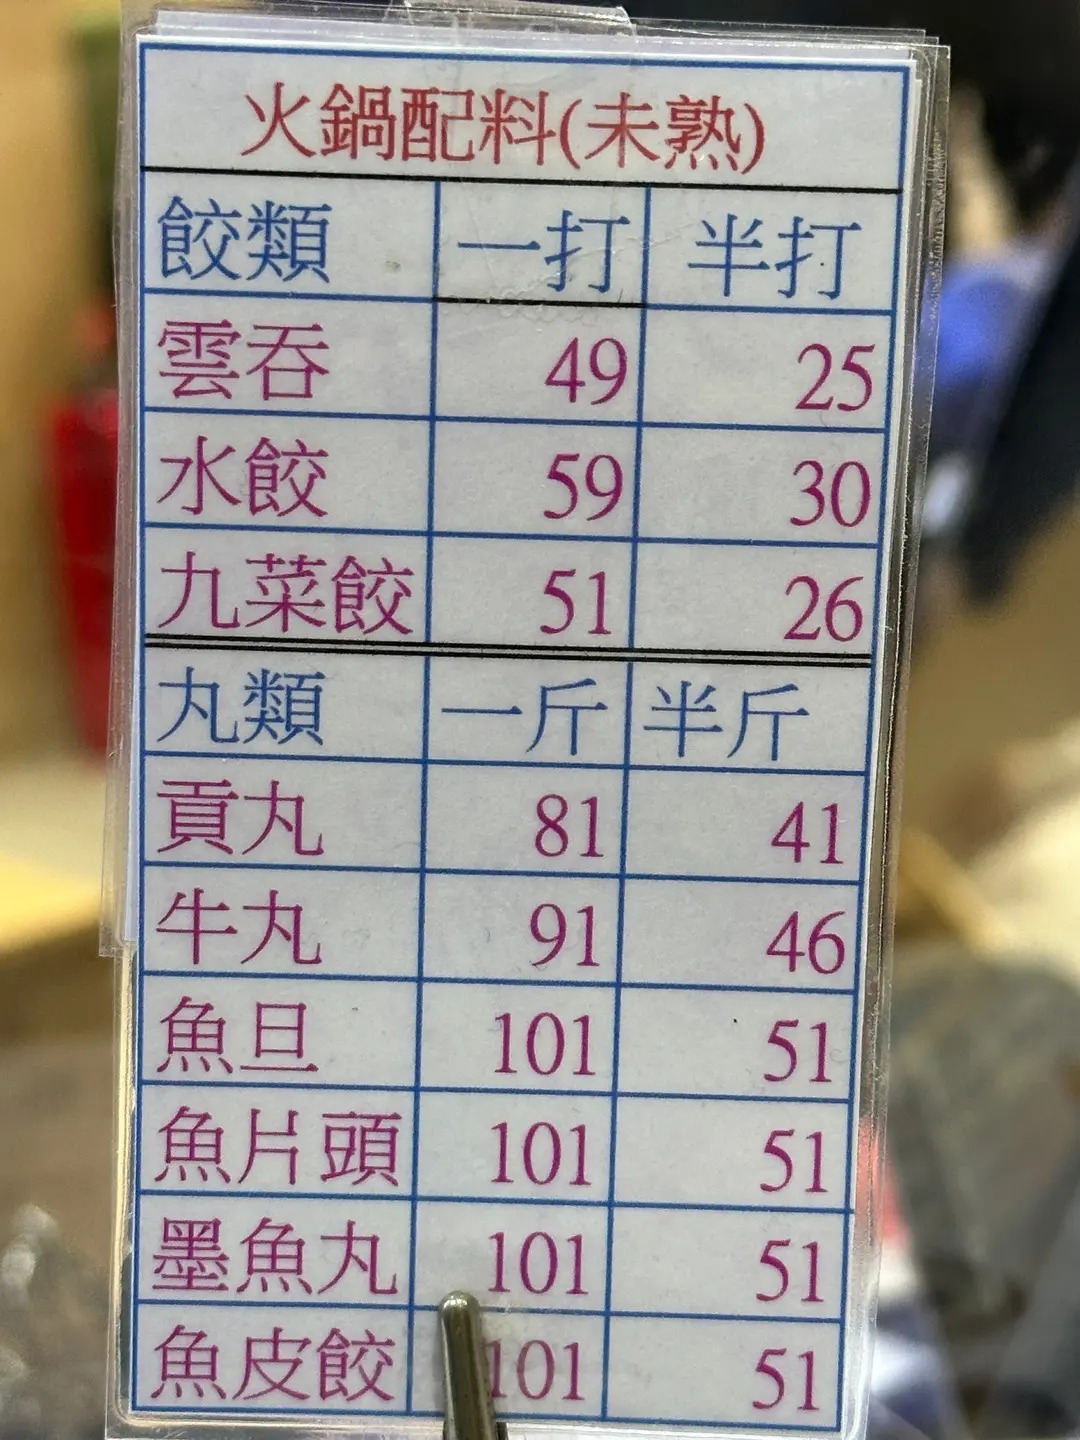 火鍋配料(未熟)
餃類 一打 半打
雲吞 49 25
水餃 59 30
九菜餃 51 26
丸類 一斤 半斤
貢丸 81 41
牛丸 91 46
魚旦 101 51
魚片頭 101 51
墨魚丸 101 51
魚皮餃 101 51